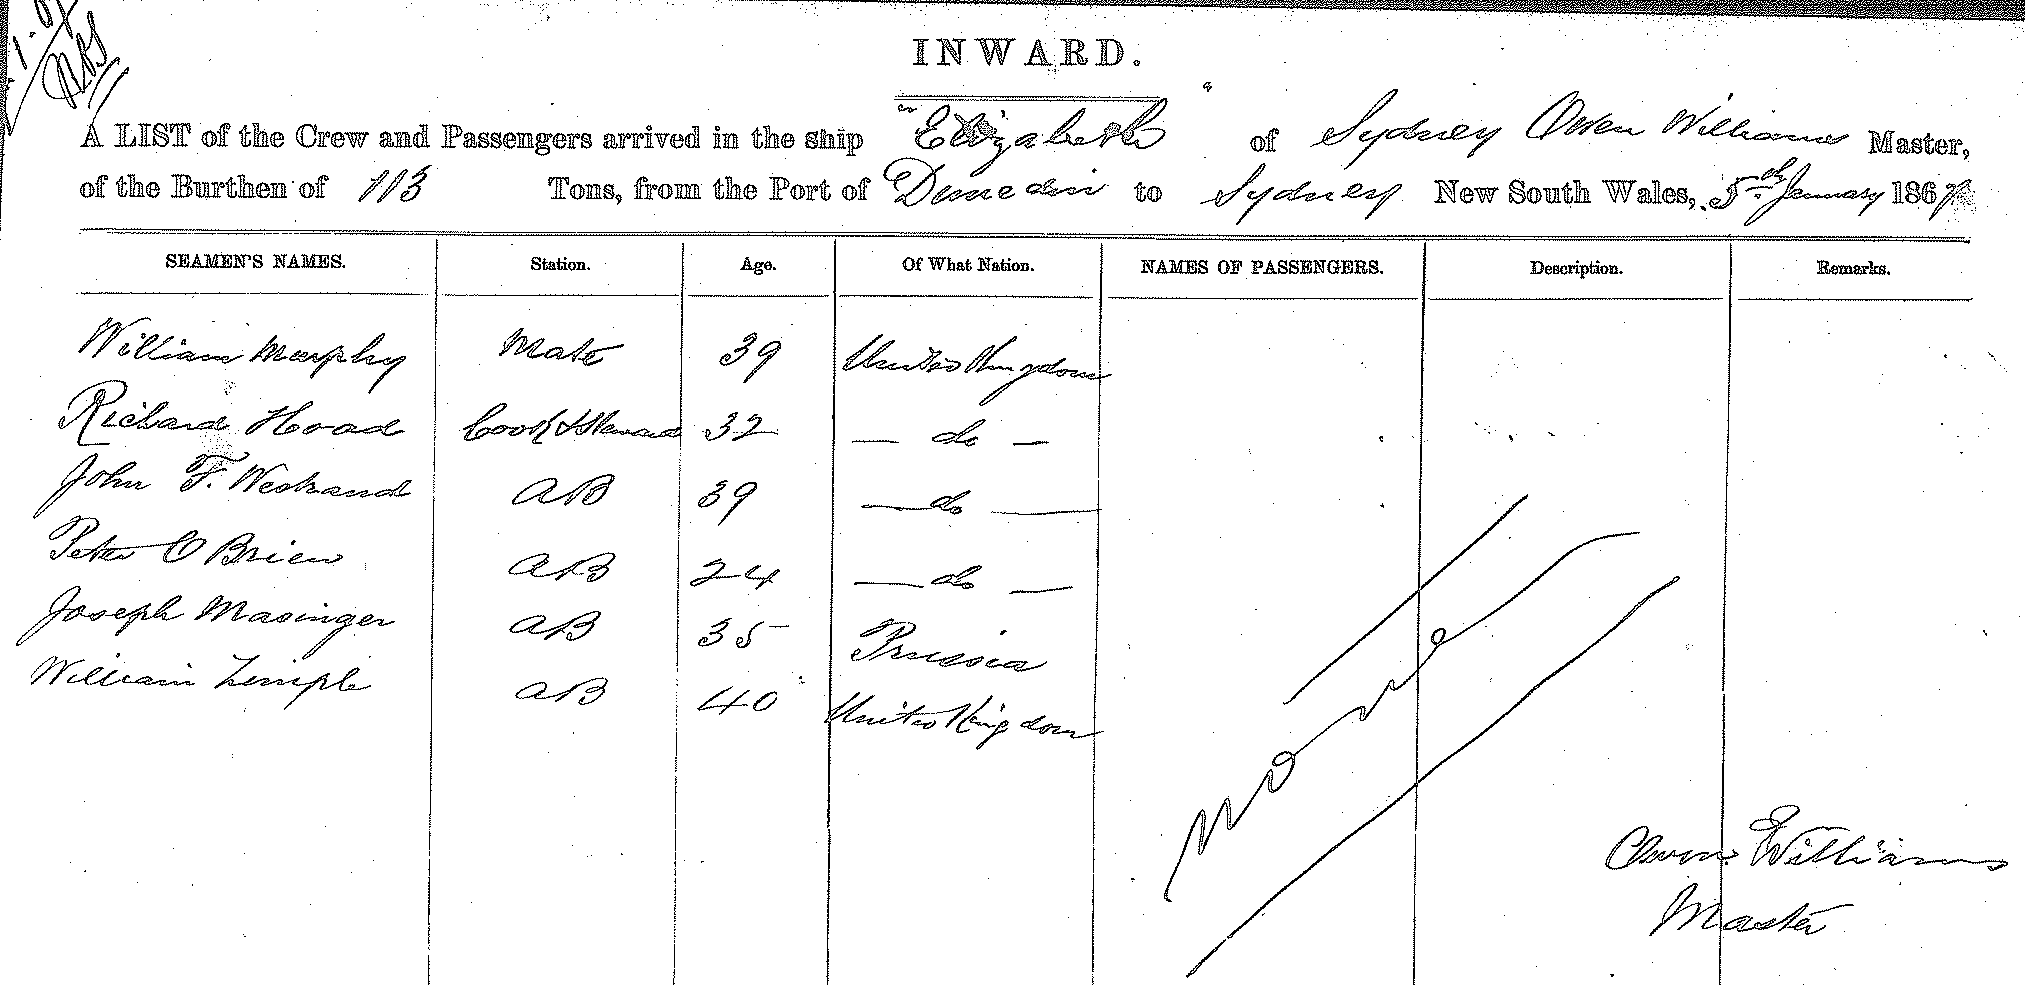 INWARD.
A LIST of the Crew and Passengers arrived in the ship "Elizabeth" of Sydney Owen Williams Master,
of the Burthen of 113 Tons, from the Port of Dunedin to Sydney New South Wales, 5th January 1867
SEAMEN'S NAMES. Station. Age. Of What Nation. NAMES OF PASSENGERS. Description. Remarks.
William Murphy Mate 39 United Kingdom
Richard Hoad Cook & Steward 32 — do —
John F. Westrand AB 39 — do —
Peter O Brien AB 24 — do —
Joseph Masinger AB 35 Prussia
William Temple AB 40 United Kingdom
None
Owen Williams
Master